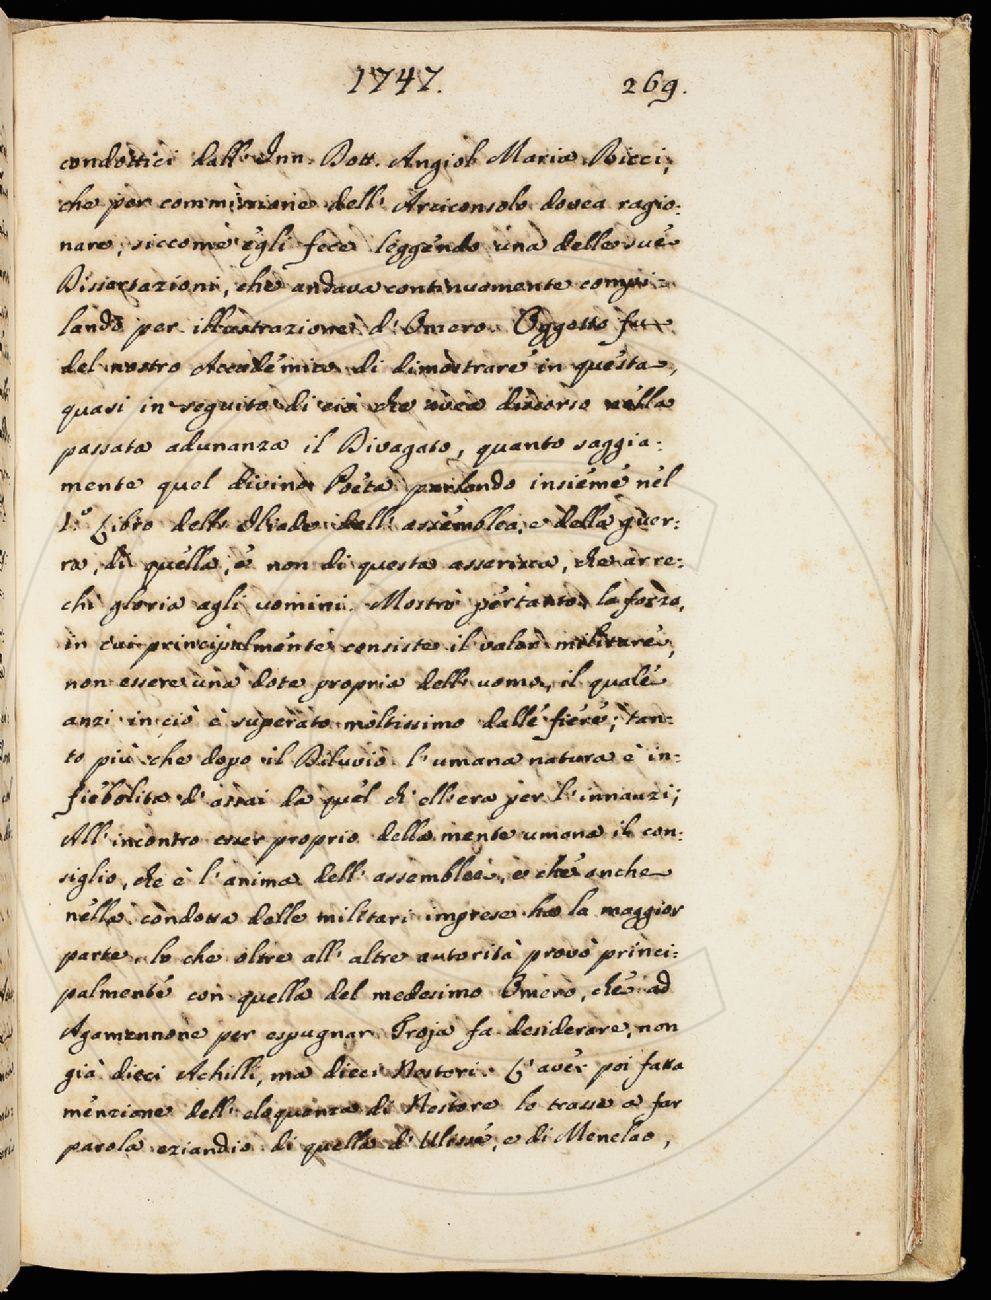 1747. 269.
condottici dall' Inn. Dott. Angiol Maria Ricci,
che per commissione dell' Arciconsolo dovea ragio:
nare, siccome egli fece leggendo una delle sue
Dissertazioni, che andava continuomente compi:
lando per illustrazione d' Omero. Oggetto fu
del nostro Accademico di dimostrare in questa,
quasi in seguito di ciò che avea discorso nella
passata adunanza il Divagato, quanto saggia:
mente quel divino Poeta parlando insieme nel
1.º Libro dell' Iliade dell' assemblea, e della guer:
ra, di quella, e non di questa asserisca, che arre:
chi gloria agli uomini. Mostrò pertanto la forza,
in cui principalmente consiste il valor militare,
non essere una dote propria dell' uomo, il quale
anzi in ciò è superato moltissimo dalle fiere; tan:
to più che dopo il Diluvio l' umana natura è in:
fiebolita d' assai da quel ch' ell' era per l' innanzi;
All' incontro esser proprio della mente umana il con:
siglio, che è l' anima dell' assemblee, e che anche
nella condotta delle militari imprese ha la maggior
parte, lo che oltre all' altre autorità provò princi:
palmente con quella del medesimo Omero, che ad
Agamennone per espugnar Troja fa desiderare, non
già dieci Achilli, ma dieci Nestori. L' aver poi fatta
menzione dell' eloquenza di Nestore lo trasse a far
parola eziandio di quella d' Ulisse, e di Menelao,